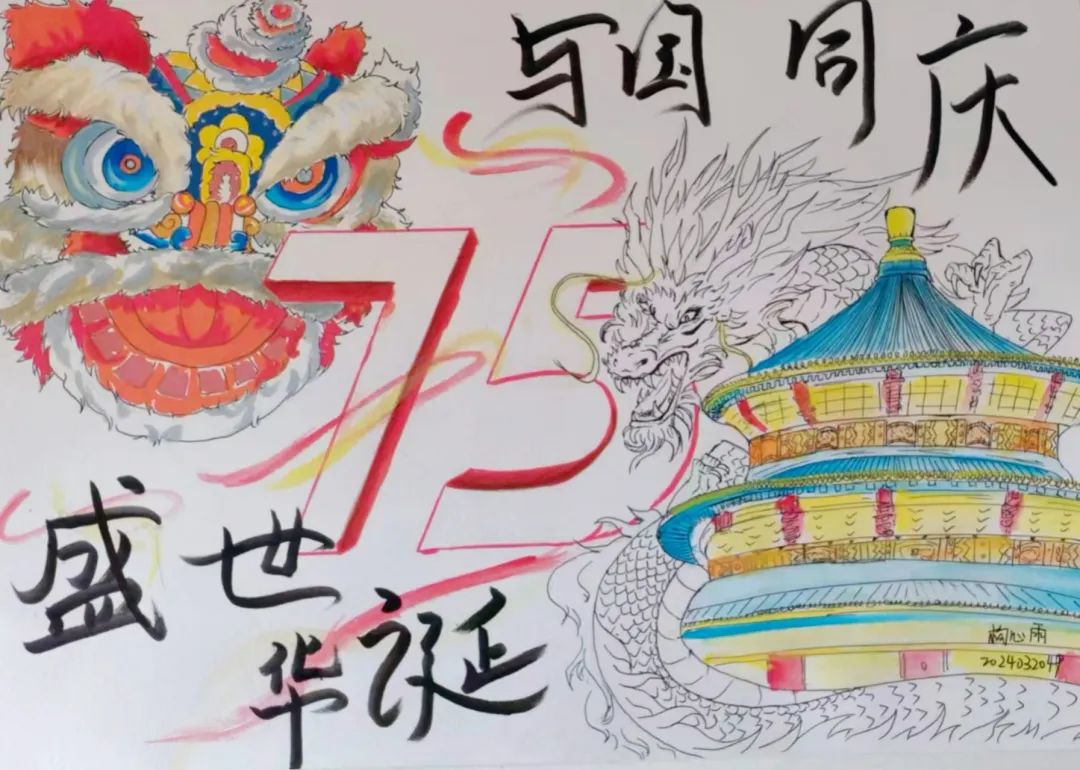 与国同庆
75
盛世
华诞
心雨
2024032049